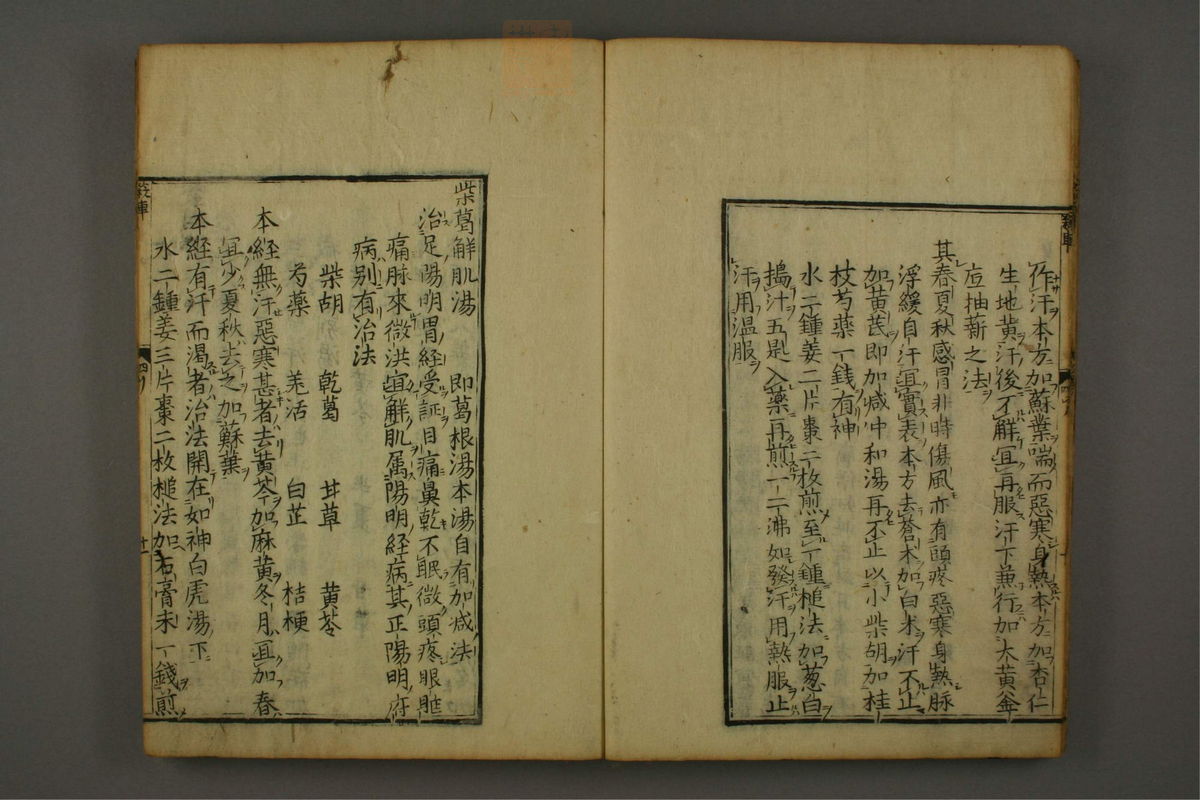 作汗本方加蘇葉喘而惡寒身熱本方加杏仁
生地黄汗後不解宜再服汗下兼行加大黄釜
底抽薪之法
其春夏秋感冒非時傷風亦有頭疼惡寒身熱脉
浮緩自汗宜實表本方去蒼术加白术汗不止
加黄芪即加减冲和湯再不止以小柴胡加桂
枝芍藥一錢有神
水二鍾姜二片棗二枚煎至一鍾槌法加葱白
搗汁五匙入藥再煎一二沸如發汗用熱服止
汗用温服
柴葛解肌湯 即葛根湯本湯自有加减法
治足陽明胃經受証目痛鼻乾不眠微頭疼眼眶
痛脉來微洪宜解肌属陽明経病其正陽明府
病别有治法
柴胡 乾葛 甘草 黄芩
芍藥 羌活 白芷 桔梗
本経無汗惡寒甚者去黄芩加麻黄冬月宜加春
宜少夏秋去之加蘇葉
本経有汗而渴者治法開在如神白虎湯下
水二鍾姜三片棗二枚槌法加石膏末一錢煎